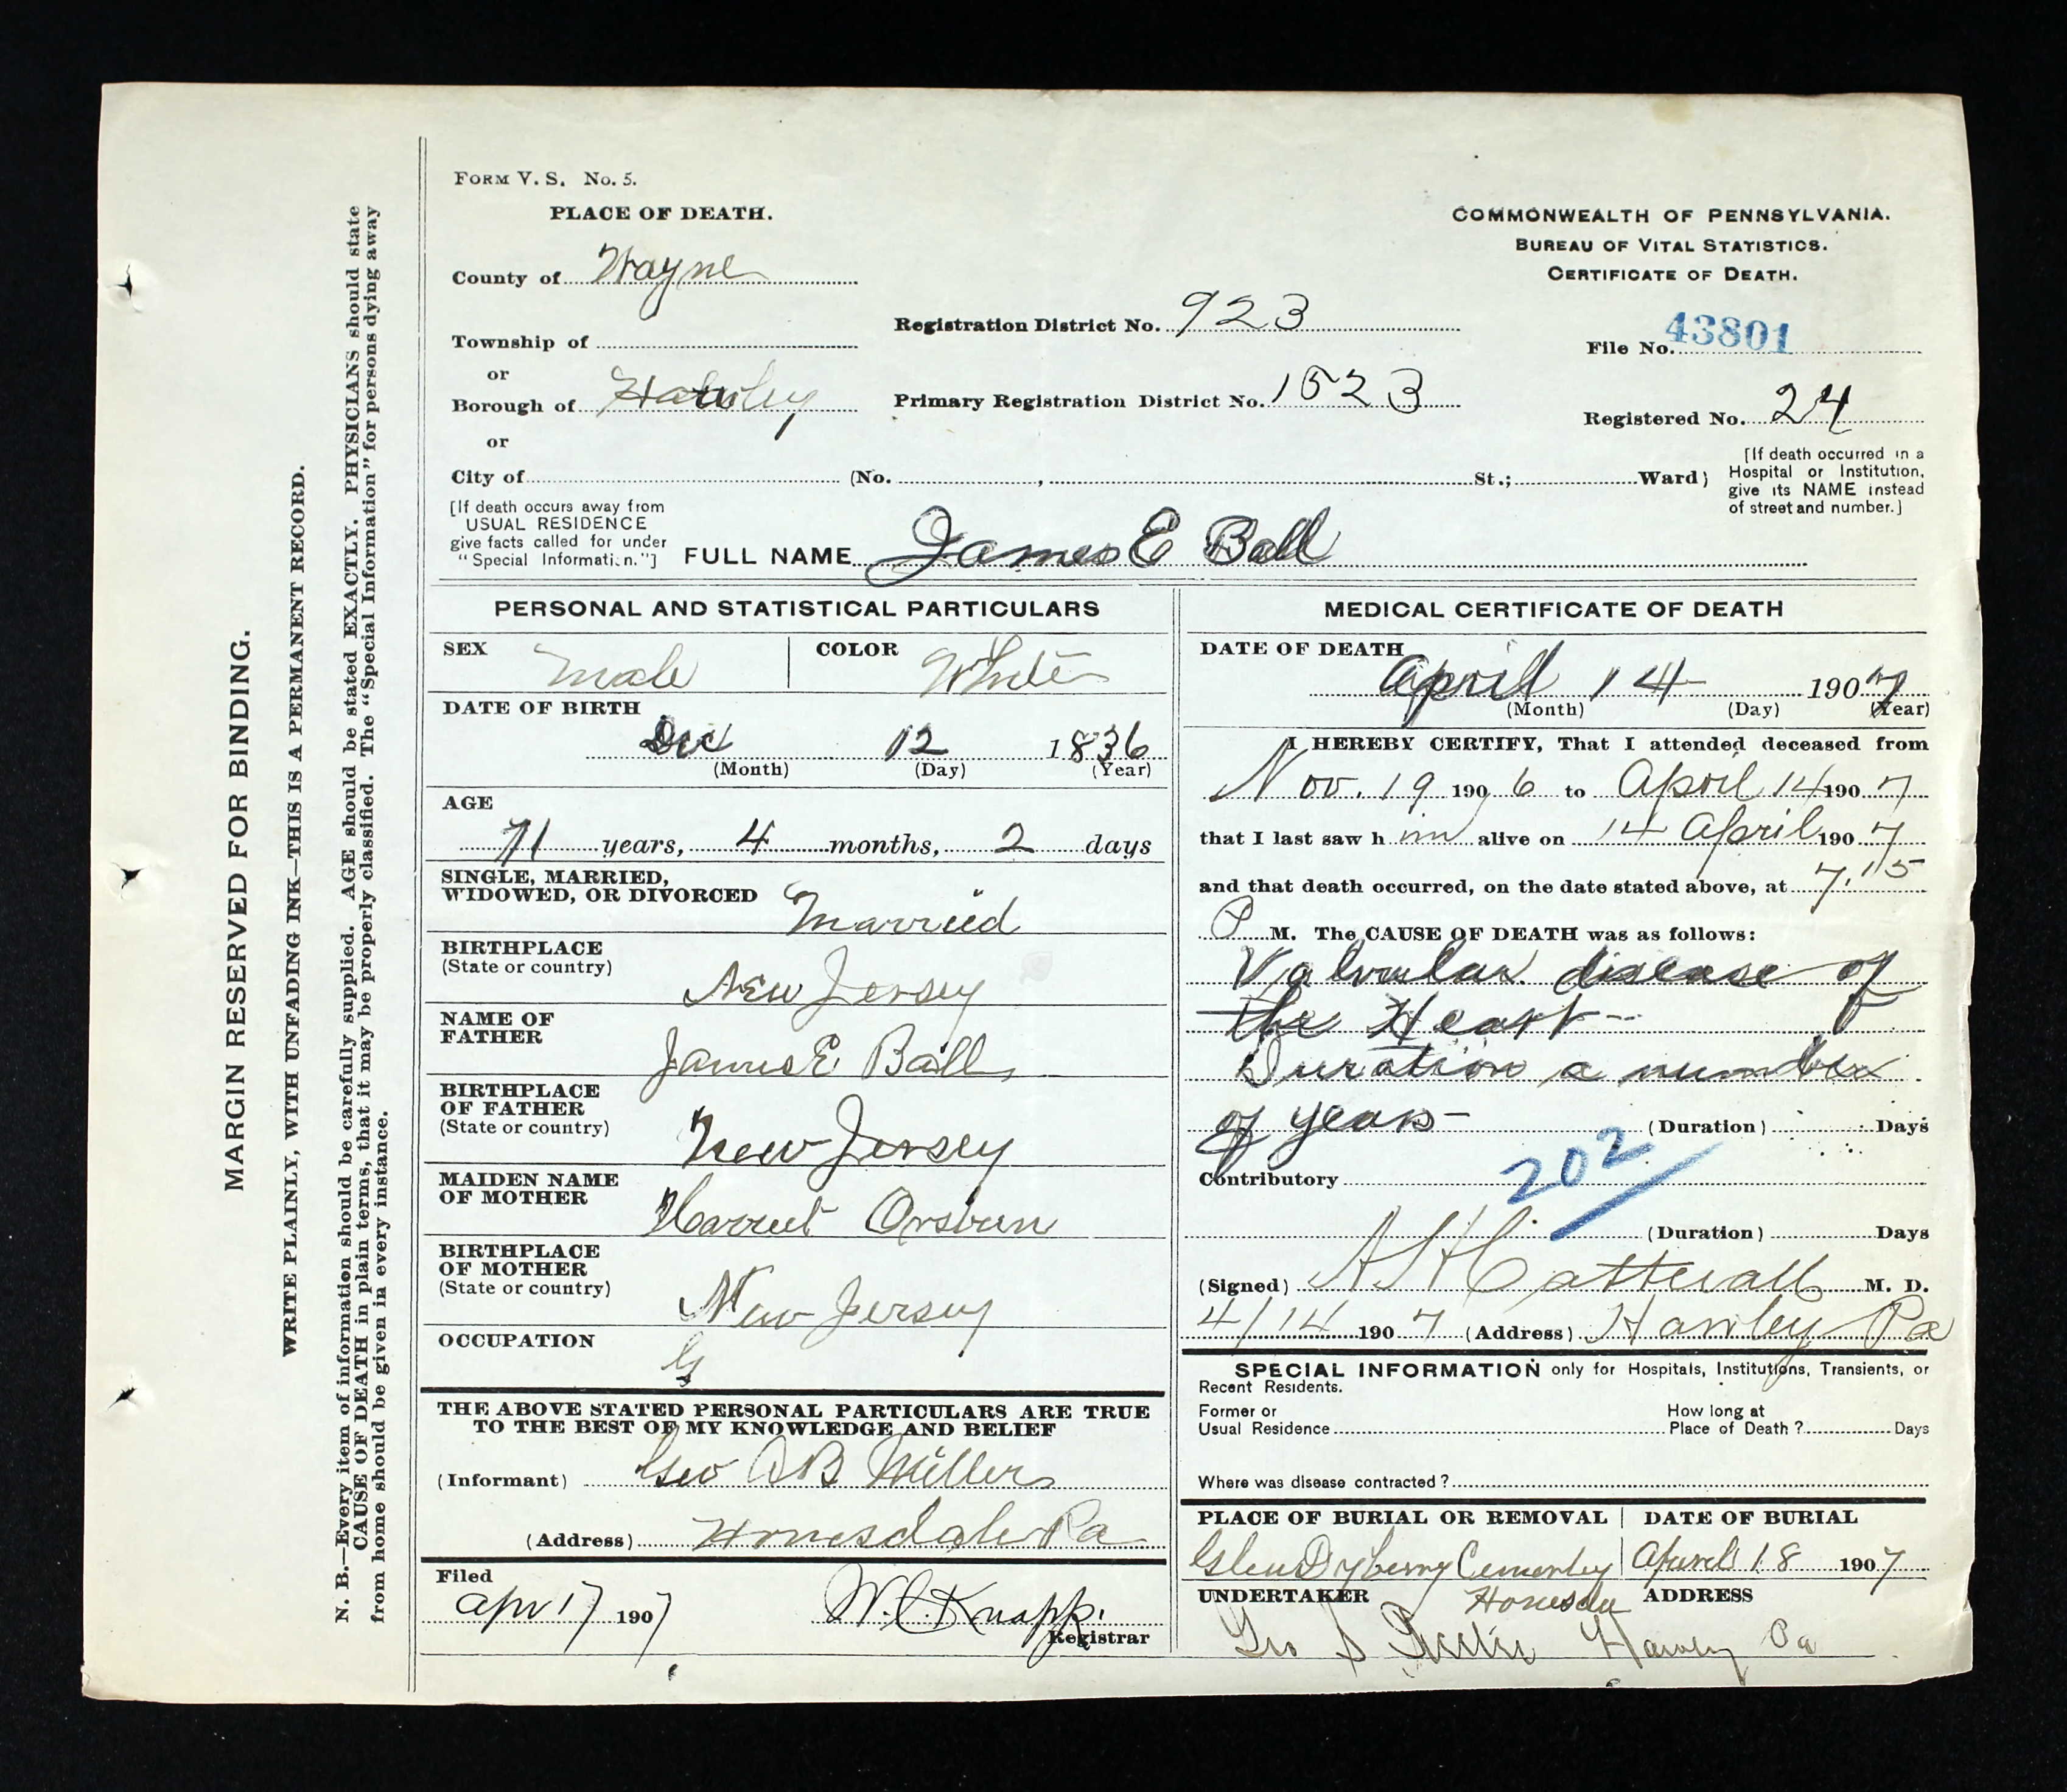 FORM V. S. No. 5.
PLACE OF DEATH.
County of Wayne
Township of
or
Borough of Hawley
or
City of (No. , St.; Ward)
[If death occurs away from
USUAL RESIDENCE
give facts called for under
"Special Information."]
COMMONWEALTH OF PENNSYLVANIA.
BUREAU OF VITAL STATISTICS.
CERTIFICATE OF DEATH.
Registration District No. 923
File No. 43801
Primary Registration District No. 1523
Registered No. 24
[If death occurred in a
Hospital or Institution,
give its NAME instead
of street and number.]
FULL NAME James E Ball
PERSONAL AND STATISTICAL PARTICULARS
SEX Male
COLOR White
DATE OF BIRTH
Dec 12 1836
(Month) (Day) (Year)
AGE
71 years, 4 months, 2 days
SINGLE, MARRIED,
WIDOWED, OR DIVORCED Married
BIRTHPLACE
(State or country) New Jersey
NAME OF
FATHER James E Ball
BIRTHPLACE
OF FATHER
(State or country) New Jersey
MAIDEN NAME
OF MOTHER Harriet Orsburn
BIRTHPLACE
OF MOTHER
(State or country) New Jersey
OCCUPATION
THE ABOVE STATED PERSONAL PARTICULARS ARE TRUE
TO THE BEST OF MY KNOWLEDGE AND BELIEF
(Informant) Geo A B Miller
(Address) Honesdale Pa
Filed
Apr 17 1907 W.C. Knapp.
Registrar
MEDICAL CERTIFICATE OF DEATH
DATE OF DEATH
April 14 1907
(Month) (Day) (Year)
I HEREBY CERTIFY, That I attended deceased from
Nov. 19 1906 to April 14 1907
that I last saw h im alive on 14 April 1907
and that death occurred, on the date stated above, at 7.15
P M. The CAUSE OF DEATH was as follows:
Valvular disease of
the Heart--
Duration a number
of years- (Duration) Days
Contributory 202
(Duration) Days
(Signed) A H Catterall M. D.
4/14 1907 (Address) Hawley Pa
SPECIAL INFORMATION only for Hospitals, Institutions, Transients, or
Recent Residents.
Former or
Usual Residence
How long at
Place of Death? Days
Where was disease contracted?
PLACE OF BURIAL OR REMOVAL
Glen Dyberry Cemetery
DATE OF BURIAL
April 18 1907
UNDERTAKER Honesdale ADDRESS
Geo S Hawley Pa
MARGIN RESERVED FOR BINDING.
WRITE PLAINLY, WITH UNFADING INK—THIS IS A PERMANENT RECORD.
N. B.—Every item of information should be carefully supplied. AGE should be stated EXACTLY. PHYSICIANS should state
CAUSE OF DEATH in plain terms, that it may be properly classified. The "Special Information" for persons dying away
from home should be given in every instance.